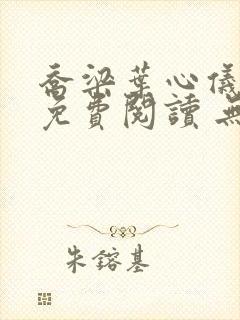 喬梁葉心儀
免費閱讀 無
朱鎔基